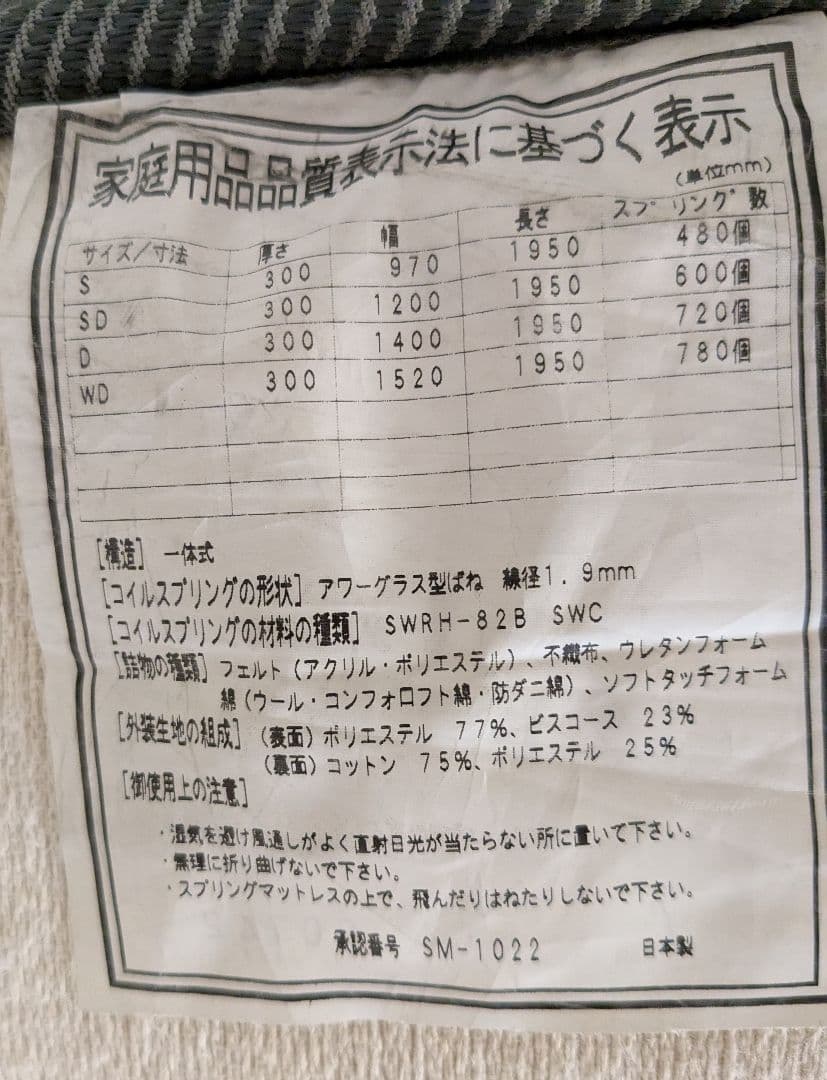 家庭用品品質表示法に基づく表示
(単位mm)
サイズ/寸法 厚さ 幅 長さ スプリング数
S 300 970 1950 480個
SD 300 1200 1950 600個
D 300 1400 1950 720個
WD 300 1520 1950 780個
[構造] 一体式
[コイルスプリングの形状] アワーグラス型ばね 線径1.9mm
[コイルスプリングの材料の種類] SWRH-82B SWC
[詰物の種類] フェルト(アクリル・ポリエステル)、不織布、ウレタンフォーム
綿(ウール・コンフォロフト綿・防ダニ綿)、ソフトタッチフォーム
[外装生地の組成] (表面)ポリエステル 77%、ビスコース 23%
(裏面)コットン 75%、ポリエステル 25%
[御使用上の注意]
・湿気を避け風通しがよく直射日光が当たらない所に置いて下さい。
・無理に折り曲げないで下さい。
・スプリングマットレスの上で、飛んだりはねたりしないで下さい。
承認番号 SM-1022 日本製